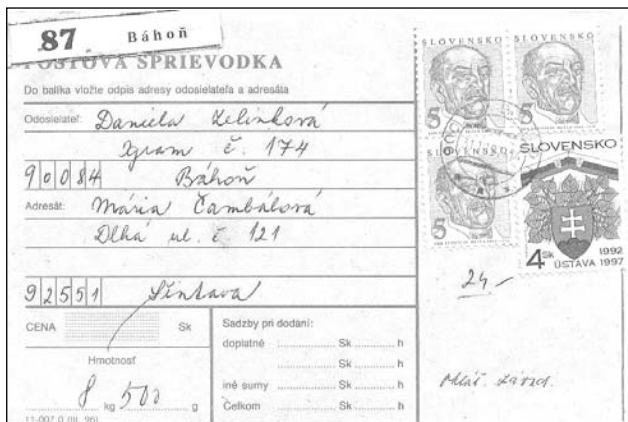 87 Báhoň
POŠTOVÁ SPRIEVODKA
Do balíka vložte odpis adresy odosielateľa a adresáta
Odosielateľ: Daniela Zelinková
Igram č. 174
90084 Báhoň
Adresát: Mária Čambálová
Dlhá ul. č 121
92551 Šintava
CENA Sk
Hmotnosť
8 kg 500 g
11-007 0 (III. 96)
Sadzby pri dodaní:
doplatné Sk h
Sk h
iné sumy Sk h
Celkom Sk h
SLOVENSKO
5
SLOVENSKO
5
SLOVENSKO
5
SLOVENSKO
4 Sk 1992
ÚSTAVA 1997
24,-